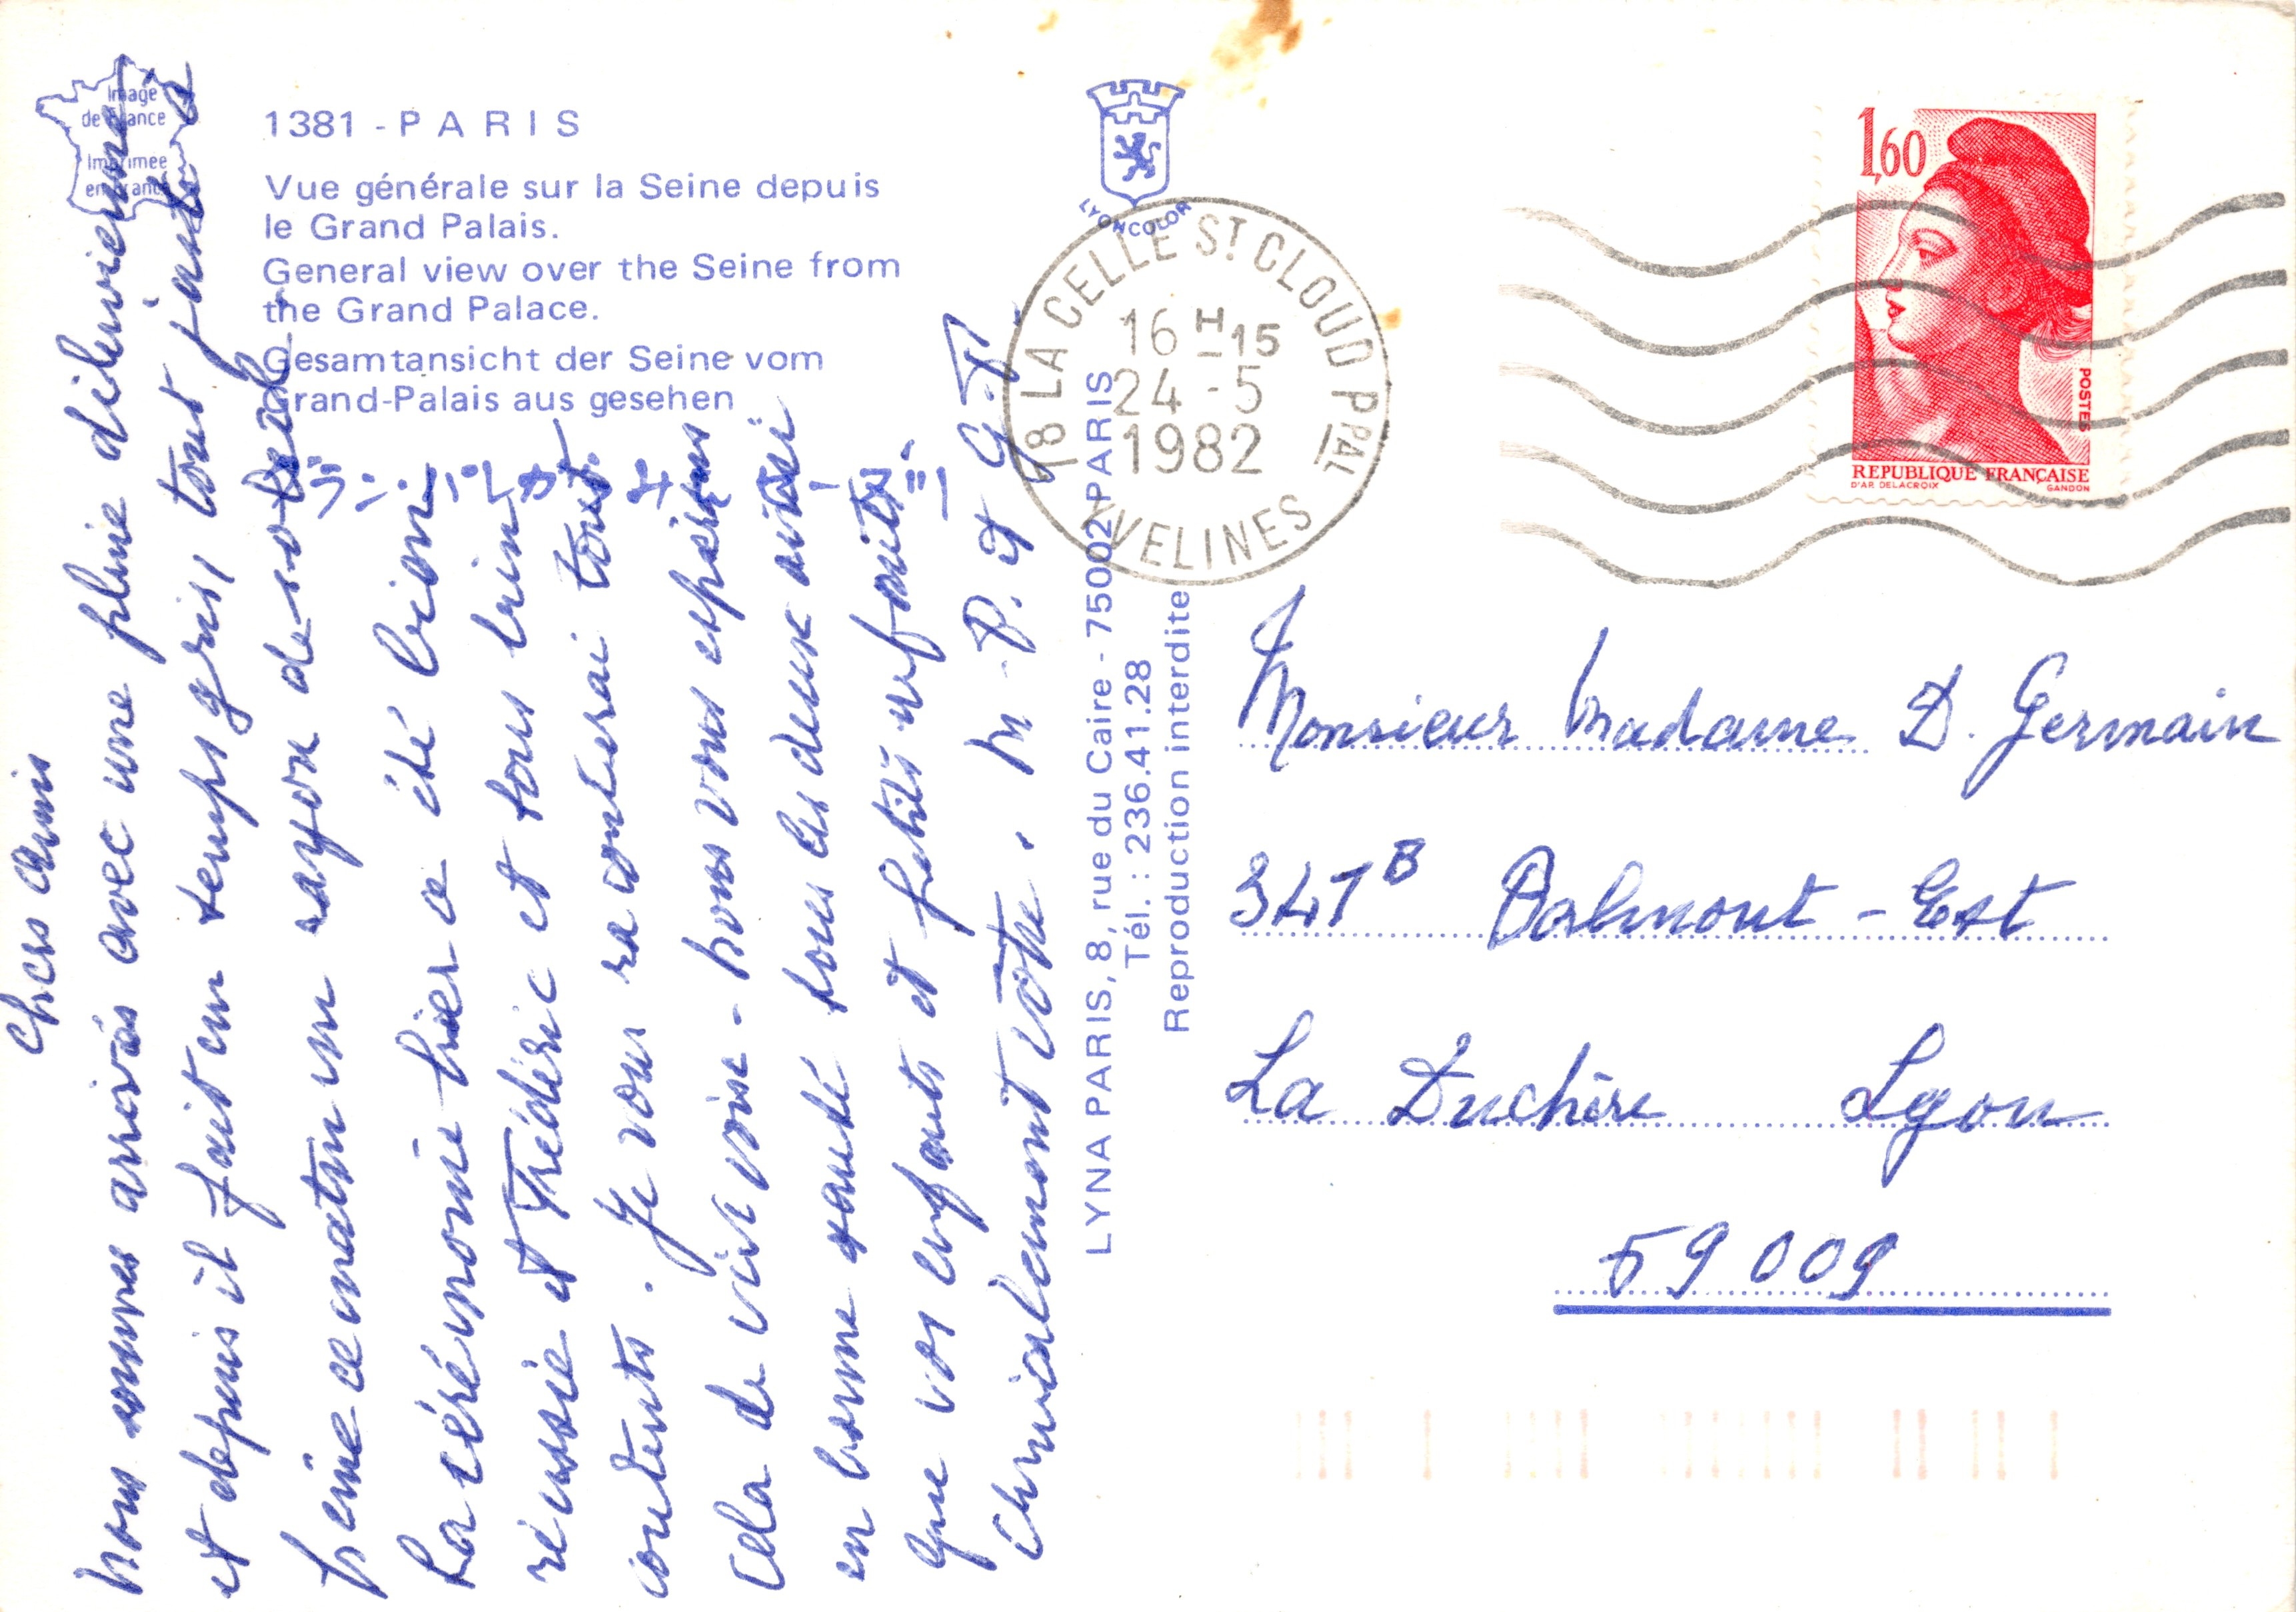 Image
de France
Imprimée
en France
1381 - PARIS
Vue générale sur la Seine depuis
le Grand Palais.
General view over the Seine from
the Grand Palace.
Gesamtansicht der Seine vom
Grand-Palais aus gesehen
LYONCOLOR
Chers amis
nous sommes arrivés avec une pluie diluvienne
et depuis il fait un temps gris, tout juste a
peine ce matin un rayon de soleil.
La cérémonie hier a été bien
réussie et Frédéric et tous bien
contents. Je vous raconterai tout
cela de vive voix - nous vous espérons
en bonne santé tous les deux ainsi
que vos enfants et petits enfants.
Amicalement votre. M - P. et G. T.
LYNA PARIS, 8, rue du Caire - 75002 PARIS
Tél. : 236.41.28
Reproduction interdite
78 LA CELLE ST CLOUD PPAL
16 H 15
24 - 5
1982
YVELINES
1,60
POSTES
REPUBLIQUE FRANÇAISE
D'AP. DELACROIX
GANDON
Monsieur Madame D. Germain
347 B Balmont - Est
La Duchère Lyon
69 009